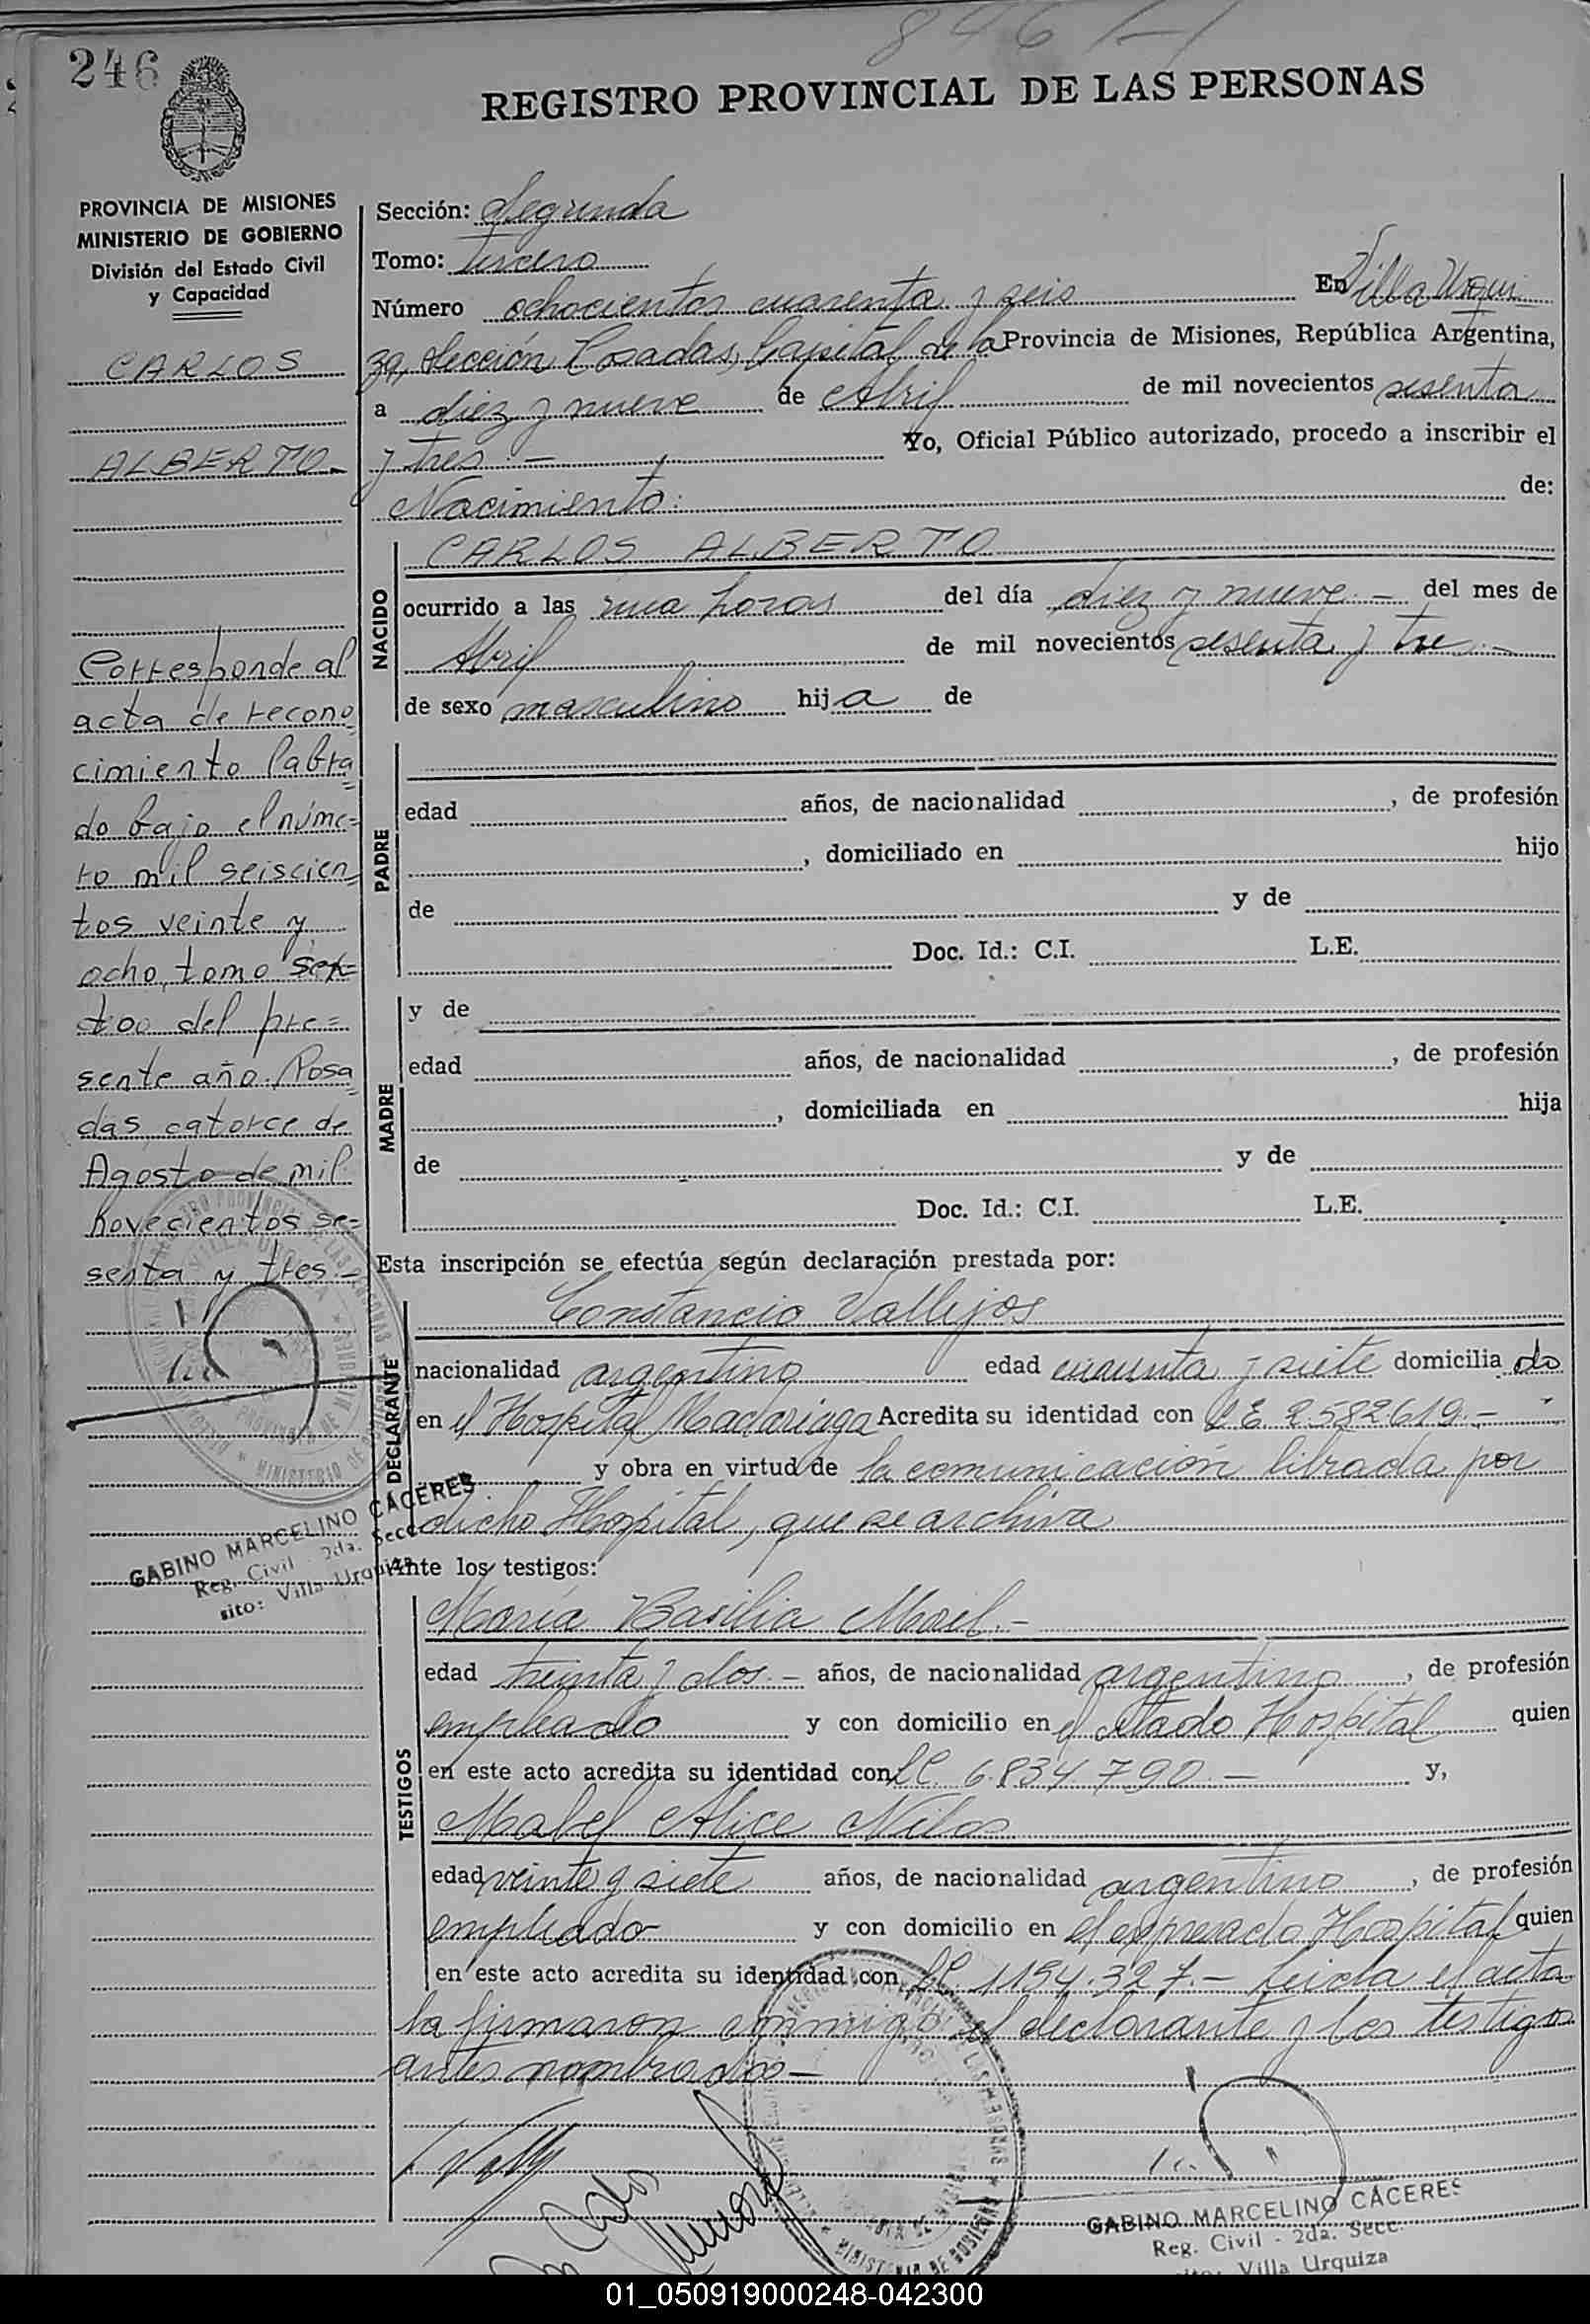 246
846
REGISTRO PROVINCIAL DE LAS PERSONAS
PROVINCIA DE MISIONES
MINISTERIO DE GOBIERNO
División del Estado Civil
y Capacidad
CARLOS
ALBERTO.-
Corresponde al
acta de recono
cimiento labra
do bajo el núme=
ro mil seiscien
tos veinte y
ocho, tomo sex=
too del pre=
sente año. Posa
das, catorce de
Agosto de mil
novecientos se=
senta y tres.-
GABINO MARCELINO CACERES
Reg. Civil - 2da. Secc.
sito: Villa Urquiza
Sección: Segunda
Tomo: Tercero
Número ochocientos cuarenta y seis En Villa Urqui
za, Sección Posadas, Capital de la Provincia de Misiones, República Argentina,
a diez y nueve de Abril de mil novecientos sesenta
y tres.- Yo, Oficial Público autorizado, procedo a inscribir el
Nacimiento: de:
NACIDO
CARLOS ALBERTO
ocurrido a las una horas del día diez y nueve.- del mes de
Abril de mil novecientos sesenta y tres.-
de sexo masculino hija de
PADRE
edad años, de nacionalidad , de profesión
, domiciliado en hijo
de y de
Doc. Id.: C.I. L.E.
MADRE
y de
edad años, de nacionalidad , de profesión
, domiciliada en hija
de y de
Doc. Id.: C.I. L.E.
Esta inscripción se efectúa según declaración prestada por:
DECLARANTE
Constancio Vallejos
nacionalidad argentino edad cuarenta y siete domicilia do
en el Hospital Madariaga Acredita su identidad con LE 2582619.-
y obra en virtud de la comunicación librada por
dicho Hospital, que se archiva
Ante los testigos:
TESTIGOS
María Basilia Morel.-
edad treinta y dos.- años, de nacionalidad argentino, de profesión
empleado y con domicilio en el citado Hospital quien
en este acto acredita su identidad con LC. 6.834.790.- y,
Mabel Alice
edad veinte y siete años, de nacionalidad argentino, de profesión
empleado y con domicilio en el expresado Hospital quien
en este acto acredita su identidad con LC. 1154.327.- Leída el acta
la firmaron conmigo el declarante y los testigos
antes nombrados.-
GABINO MARCELINO CACERES
Reg. Civil - 2da. Secc.
sito: Villa Urquiza
01_050919000248-042300